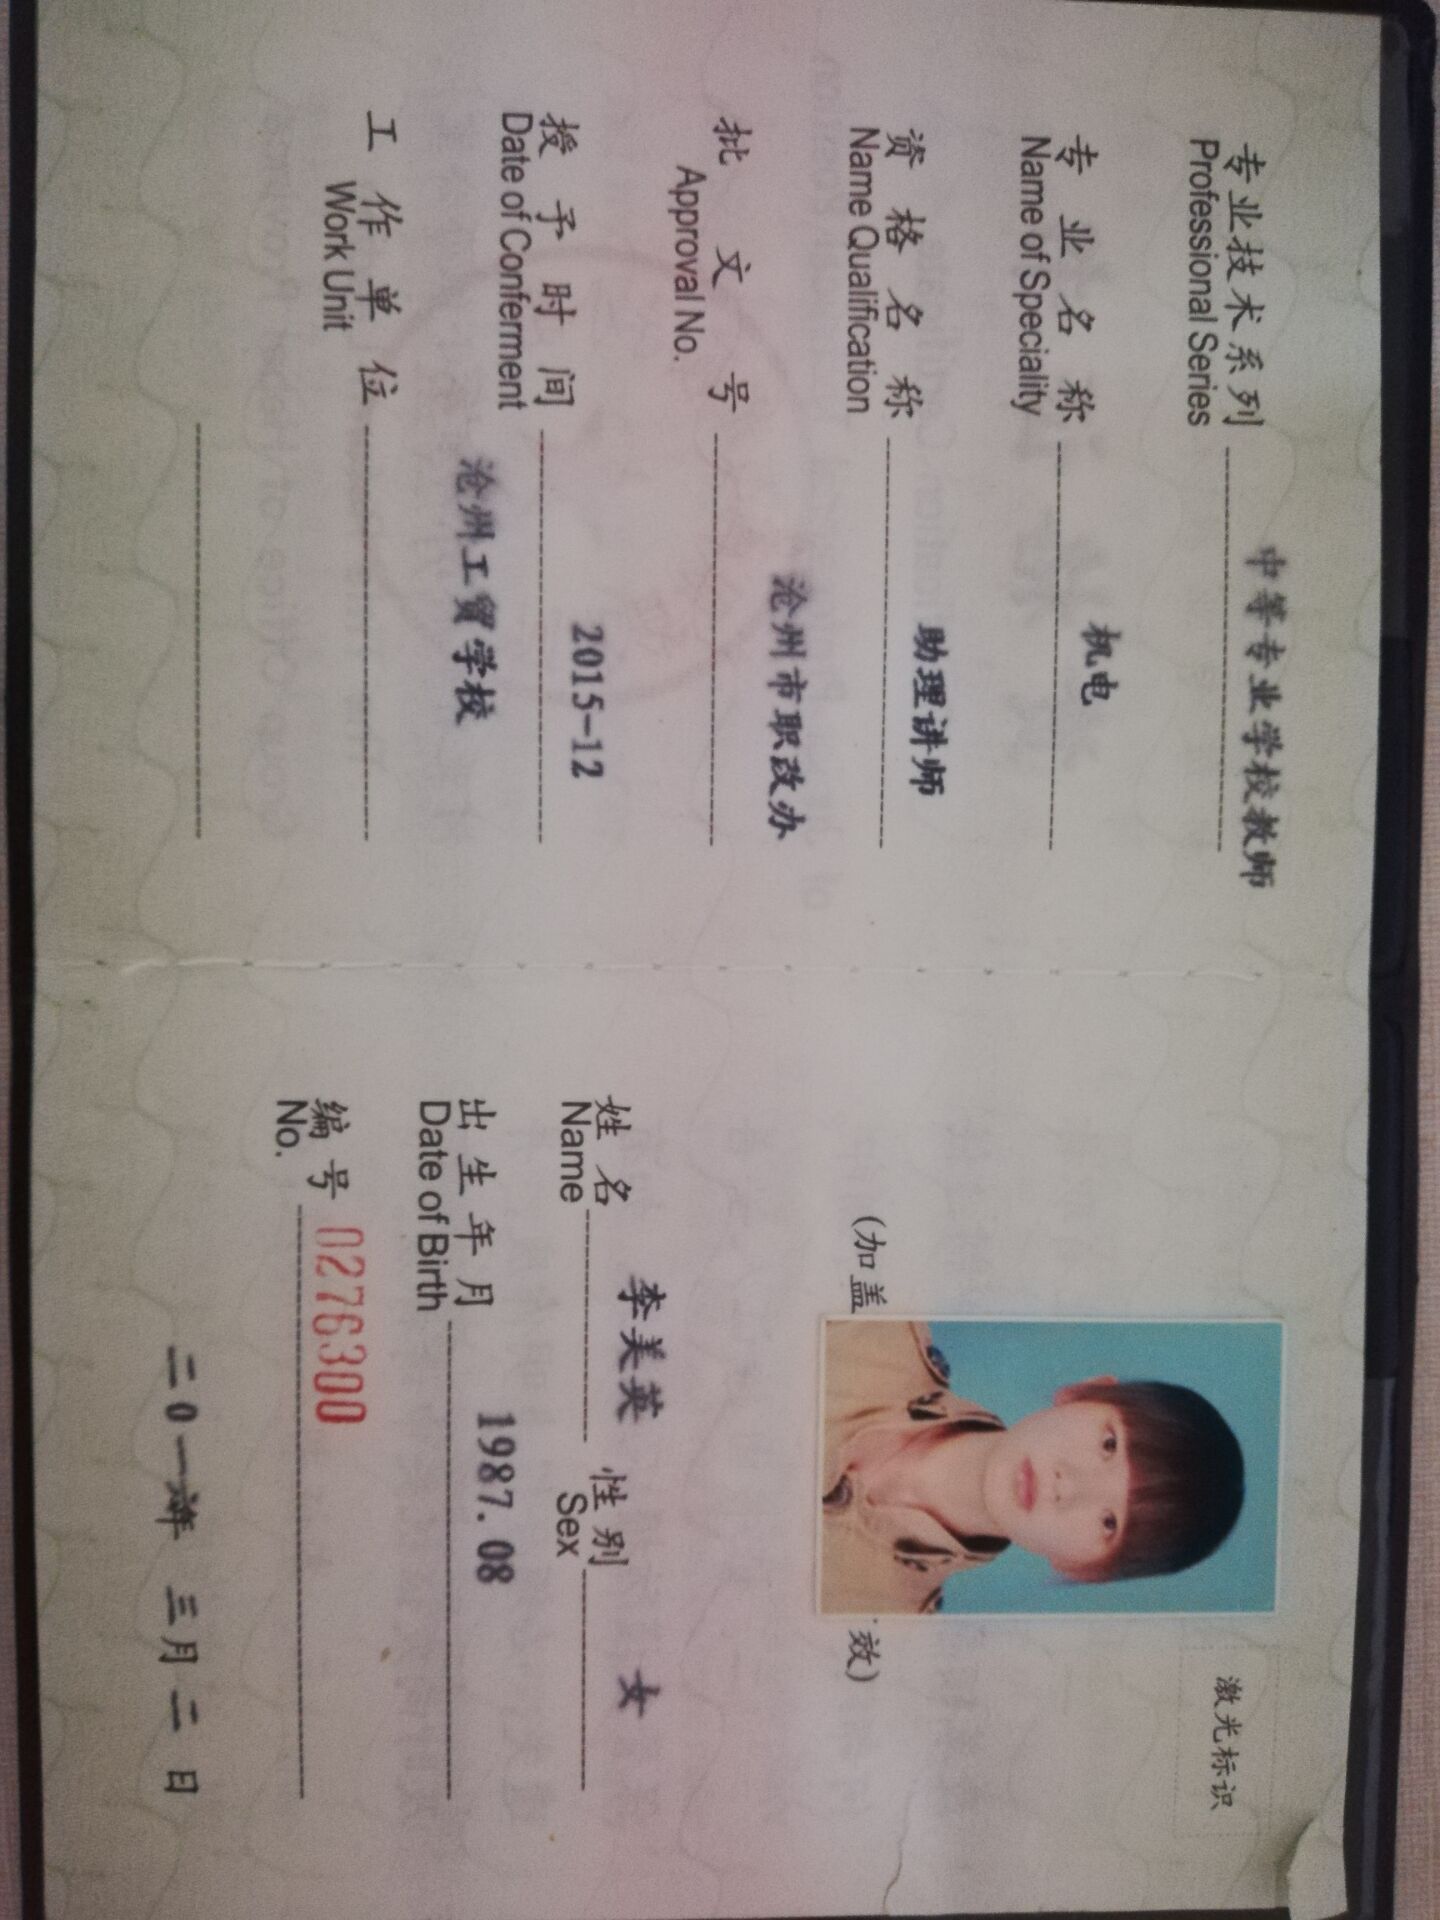 专业技术系列 中等专业学校教师
Professional Series
专业名称 机电
Name of Speciality
资格名称 助理讲师
Name Qualification
沧州市职改办
批文号
Approval No.
授予时间 2015-12
Date of Conferment
沧州工贸学校
工作单位
Work Unit
激光标识
(加盖
效)
姓名 李美英 性别 女
Name Sex
出生年月 1987.08
Date of Birth
编号 0276300
No.
二0一六年 三月二日